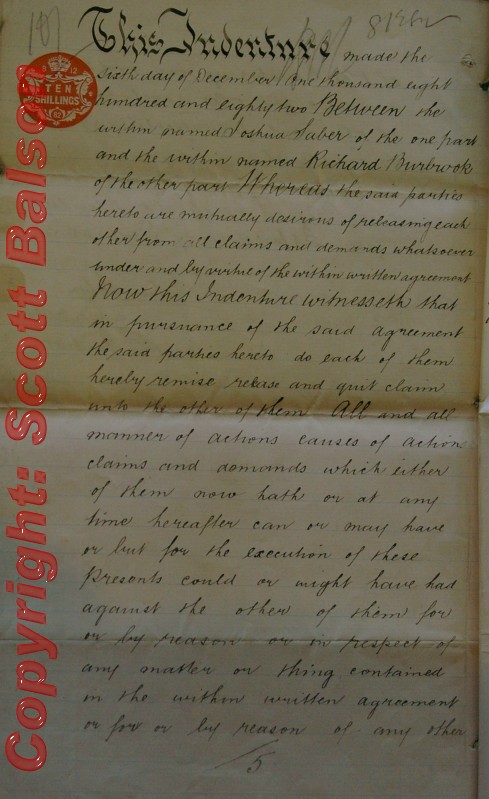 This Indenture made the
TEN
SHILLINGS
sixth day of December One thousand eight
hundred and eighty two Between the
within named Joshua of the one part
and the within named Richard Burbrook
of the other part Whereas the said parties
hereto are mutually desirous of releasing each
other from all claims and demands whatsoever
under and by virtue of the within written agreement
Now this Indenture witnesseth that
in pursuance of the said agreement
the said parties hereto do each of them
hereby remise release and quit claim
unto the other of them All and all
manner of actions causes of action
claims and demands which either
of them now hath or at any
time hereafter can or may have
or but for the execution of these
Presents could or might have had
against the other of them for
or by reason or in respect of
any matter or thing contained
in the within written agreement
or for or by reason of any other
5
Copyright: Scott Balson